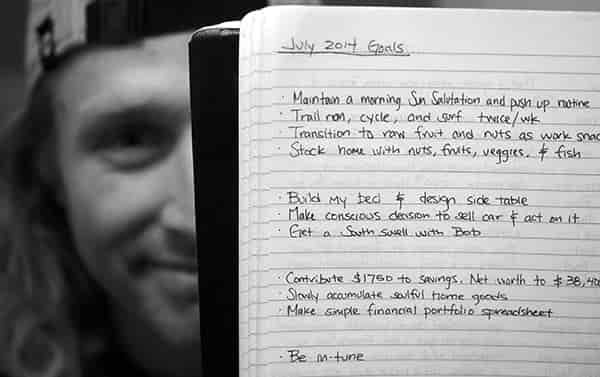 July 2014 Goals
· Maintain a morning Sun Salutation and push up routine
· Trail run, cycle, and surf twice/wk
· Transition to raw fruit and nuts as work snac
· Stock home with nuts, fruits, veggies, & fish
· Build my bed & design side table
· Make conscious decision to sell car & act on it
· Get a South swell with Bob
· Contribute $1750 to savings. Net worth to $38,4
· Slowly accumulate soulful home goods
· Make simple financial portfolio spreadsheet
· Be in-tune